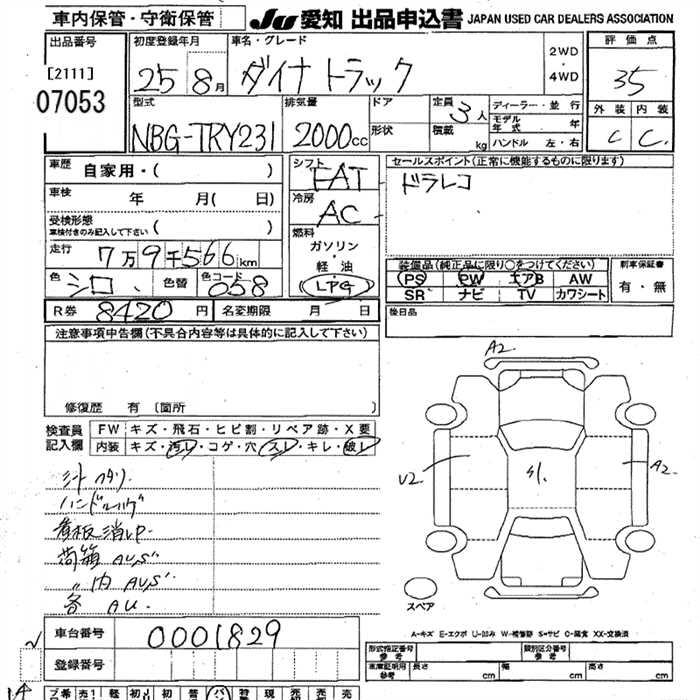 車内保管・守衛保管
JU 愛知 出品申込書 JAPAN USED CAR DEALERS ASSOCIATION
出品番号
[2111]
07053
初度登録年月
25 8月
車名・グレード
ダイナ トラック
2WD
・
4WD
評価点
35
外装 内装
C C
型式
NBG-TRY231
排気量
2000cc
ドア
形状
定員 3人
積載 kg
ディーラー・並行
モデル年式 年
ハンドル 左・右
車歴 自家用・( )
車検 年 月(日)
受検形態
車検付きのみ記入して下さい ( )
走行 7万9千566km
色 シロ 色替
色コード 058
シフト FAT
冷房 AC
燃料
ガソリン
・
軽油
LPG
セールスポイント(正常に機能するものに限ります)
ドラレコ
装備品(純正品に限り○をつけてください)
PS PW エアB AW
SR ナビ TV カワシート
新車保証書
有・無
R券 8420円 名変期限 月 日
後日品
注意事項申告欄(不具合内容等は具体的に記入して下さい)
修復歴 有 〔箇所
検査員記入欄
FW キズ・飛石・ヒビ割・リペア跡・X要
内装 キズ・汚レ・コゲ・穴・スレ・キレ・破レ
看板消しP.
荷箱 AU,S
〃 内 AU,S
各 AU.
A2
U2
A2
スペア
A-キズ E-エクボ U-凹み W-補修跡 S-サビ C-腐食 XX-交換済
車台番号 0001829
登録番号
型式指定番号 参考
類別区分番号 参考
車庫証明用 参考 長さ cm 幅 cm 高さ cm